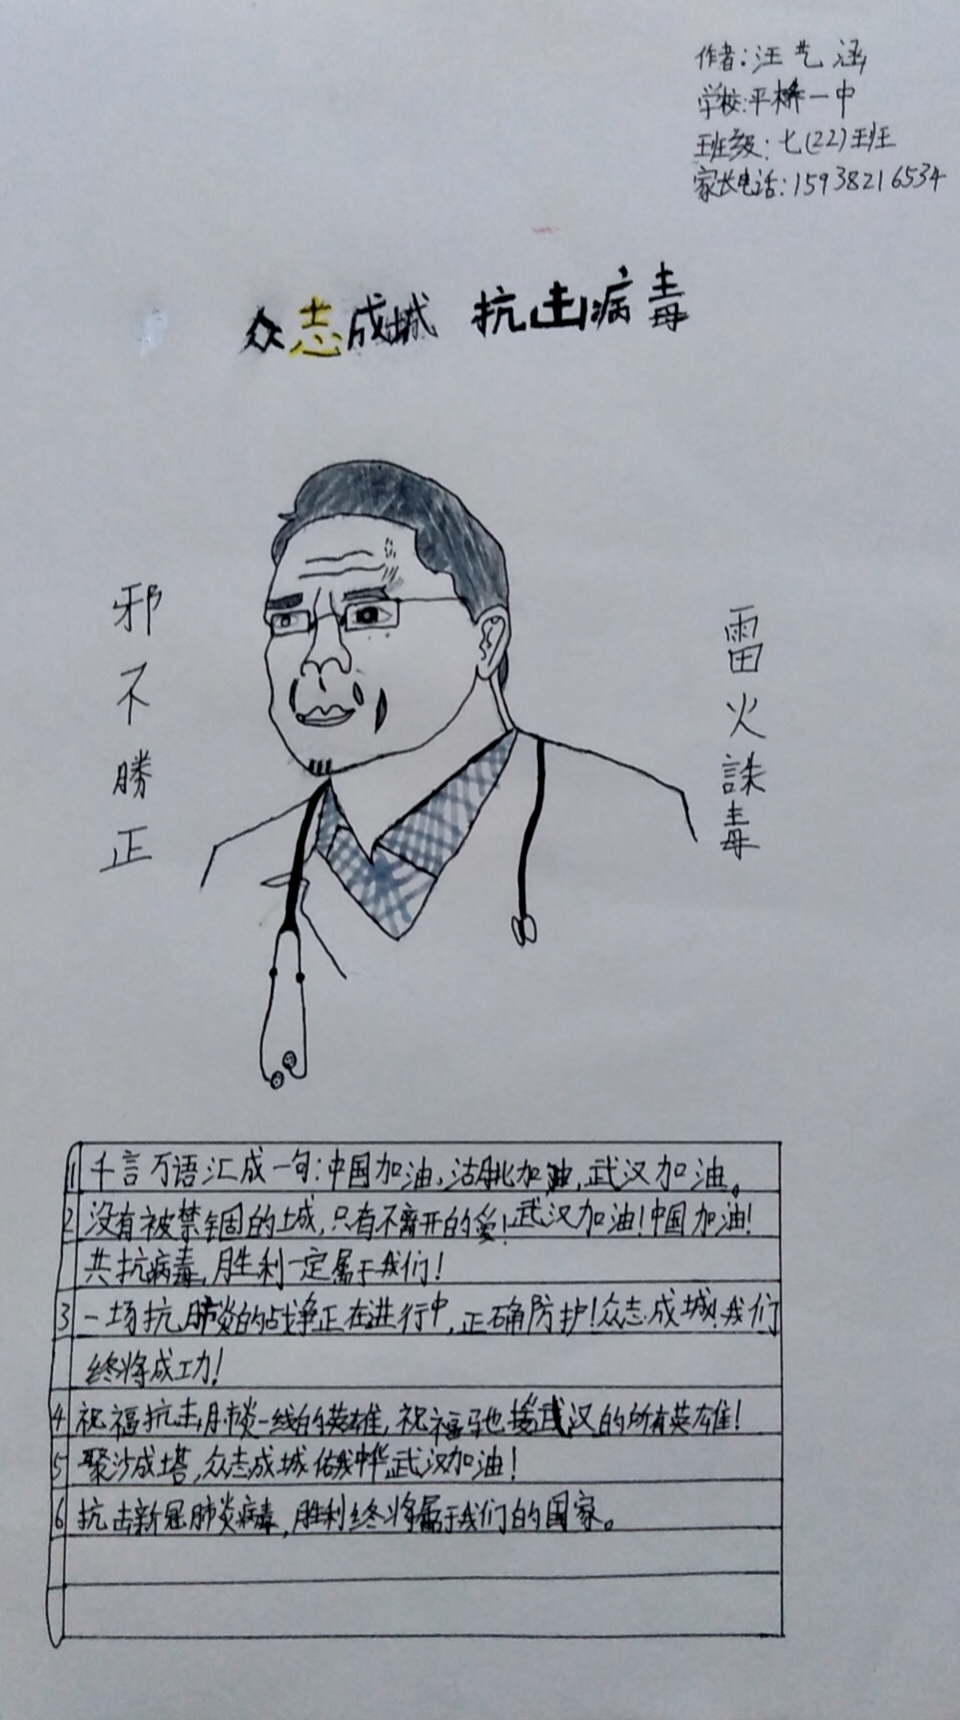 作者:汪艺涵
学校:平桥一中
班级:七(22)班
家长电话:15938216534
众志成城 抗击病毒
邪不勝正
雷火誅毒
1 千言万语汇成一句:中国加油,湖北加油,武汉加油。
2 没有被禁锢的城,只有不离开的爱!武汉加油!中国加油!
共抗病毒,胜利一定属于我们!
3 一场抗肺炎的战争正在进行中,正确防护!众志成城!我们
终将成功!
4 祝福抗击肺炎一线的英雄,祝福驰援武汉的所有英雄!
5 聚沙成塔,众志成城佑我中华武汉加油!
6 抗击新冠肺炎病毒,胜利终将属于我们的国家。